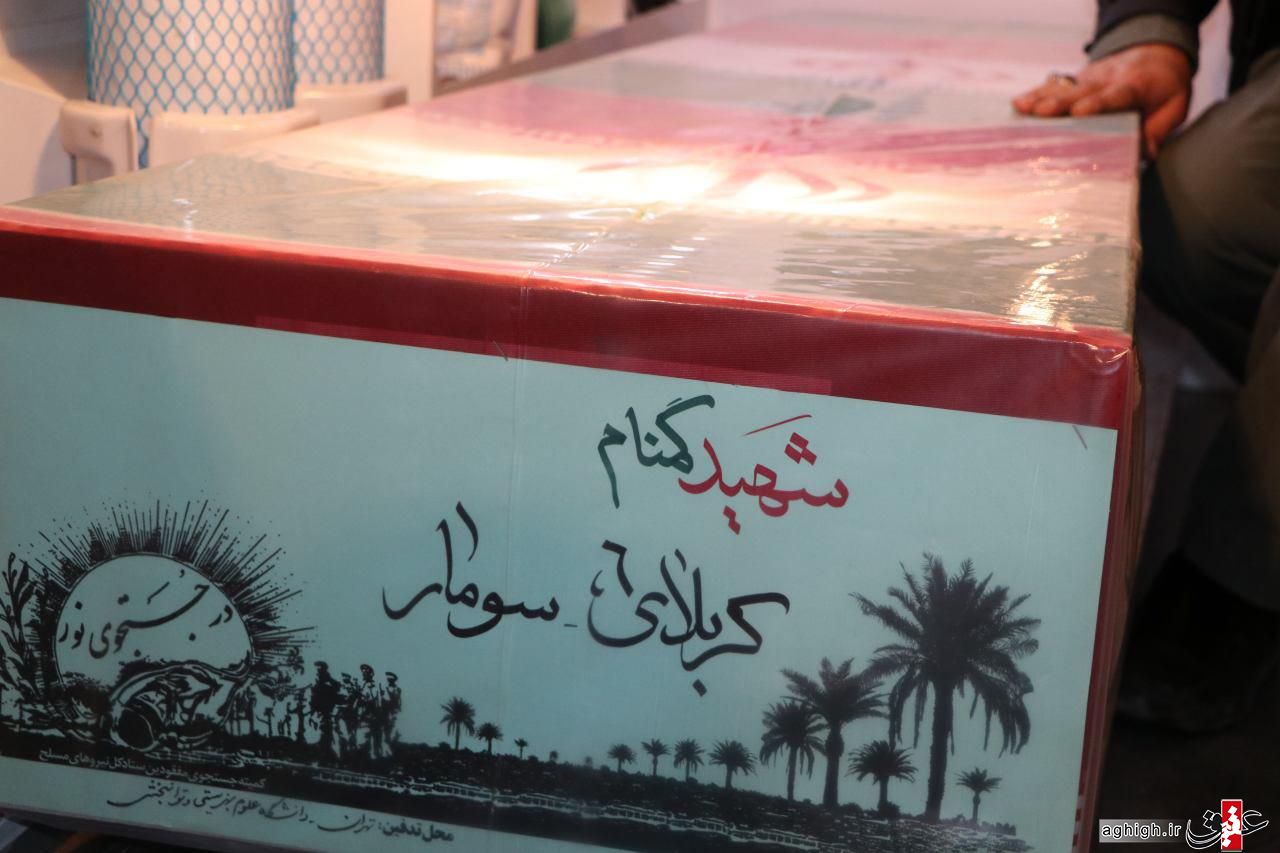 شهید گمنام
کربلای ۶ - سومار
در جستجوی نور
کمیته جستجوی مفقودین ستاد کل نیروهای مسلح
محل تدفین: تهران - دانشگاه علوم بهزیستی و توانبخشی
عقیق
aghigh.ir